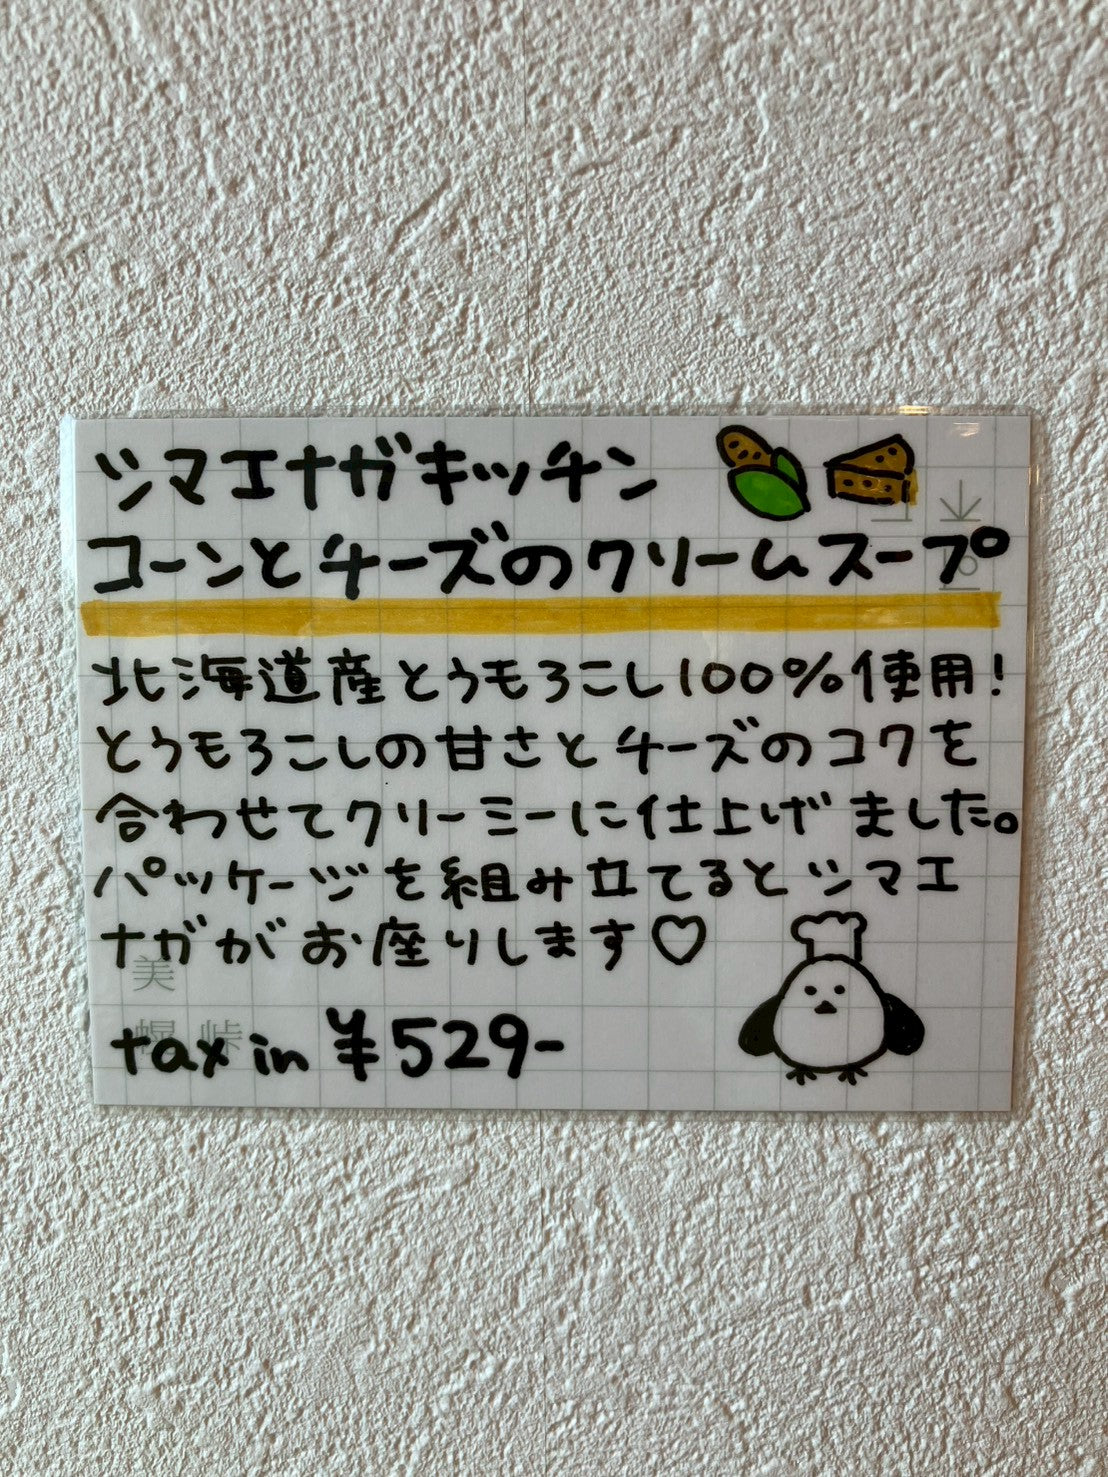 シマエナガキッチン
コーンとチーズのクリームスープ
北海道産とうもろこし100%使用!
とうもろこしの甘さとチーズのコクを
合わせてクリーミーに仕上げました。
パッケージを組み立てるとシマエ
ナガがお座りします♡
美
幌 峠
tax in ¥529-